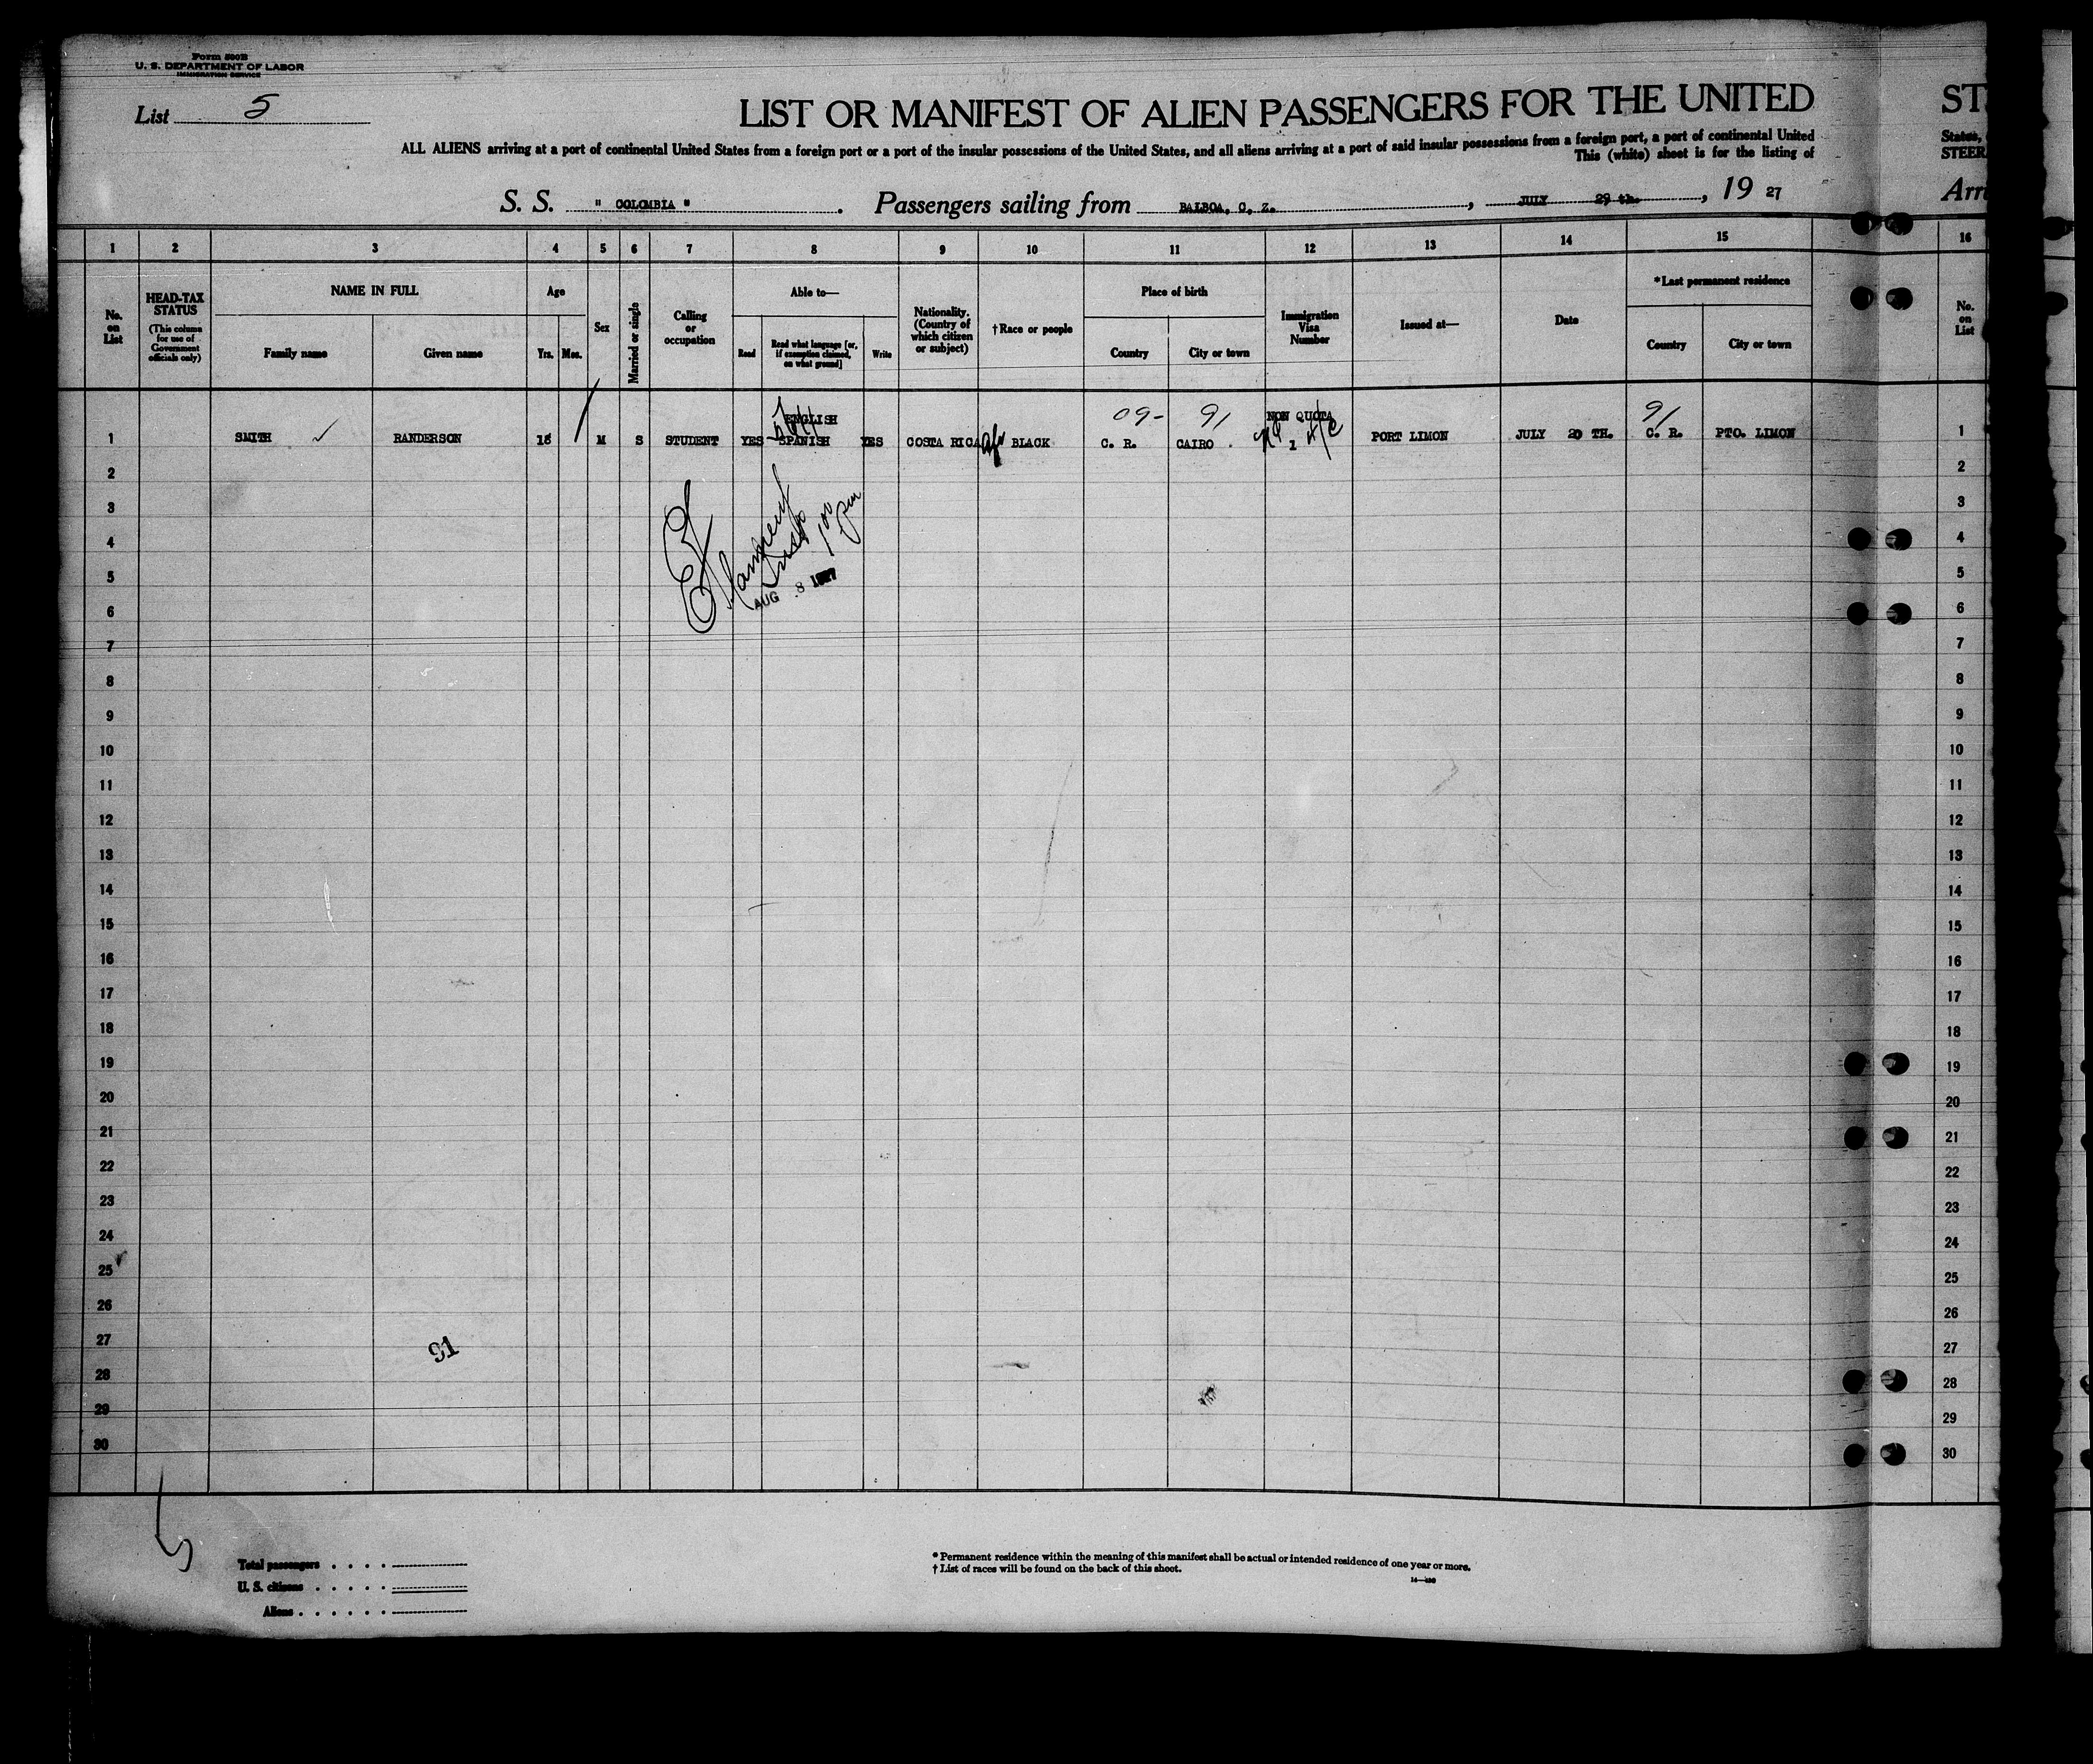 Form 500B
U. S. DEPARTMENT OF LABOR
IMMIGRATION SERVICE
List 5
LIST OR MANIFEST OF ALIEN PASSENGERS FOR THE UNITED
ST
ALL ALIENS arriving at a port of continental United States from a foreign port or a port of the insular possessions of the United States, and all aliens arriving at a port of said insular possessions from a foreign port, a port of continental United
States,
This (white) sheet is for the listing of
STEER
S. S. " COLOMBIA " . Passengers sailing from BALBOA, C, Z. , JULY 29 th. , 19 27
Arri
1 2 3 4 5 6 7 8 9 10 11 12 13 14 15 16
No. on List
HEAD-TAX STATUS
(This column for use of Government officials only)
NAME IN FULL
Family name
Given name
Age
Yrs. Mos.
Sex
Married or single
Calling or occupation
Able to—
Read
Read what language [or, if exemption claimed, on what ground]
Write
Nationality. (Country of which citizen or subject)
† Race or people
Place of birth
Country
City or town
Immigration Visa Number
Issued at—
Date
*Last permanent residence
Country
City or town
No. on List
ENGLISH 09- 91 NON QUOTA 91
1 SMITH ✓ RANDERSON 18 M S STUDENT YES SPANISH YES COSTA RICA BLACK C. R. CAIRO . 1 PORT LIMON JULY 20 TH. C. R. PTO. LIMON 1
2 2
3 3
4 4
5 5
6 6
AUG 8 1927
7 7
8 8
9 9
10 10
11 11
12 12
13 13
14 14
15 15
16 16
17 17
18 18
19 19
20 20
21 21
22 22
23 23
24 24
25 25
26 26
27 27
91
28 28
29 29
30 30
5
Total passengers . . . .
U. S. citizens . . . . .
Aliens . . . . . .
* Permanent residence within the meaning of this manifest shall be actual or intended residence of one year or more.
† List of races will be found on the back of this sheet.